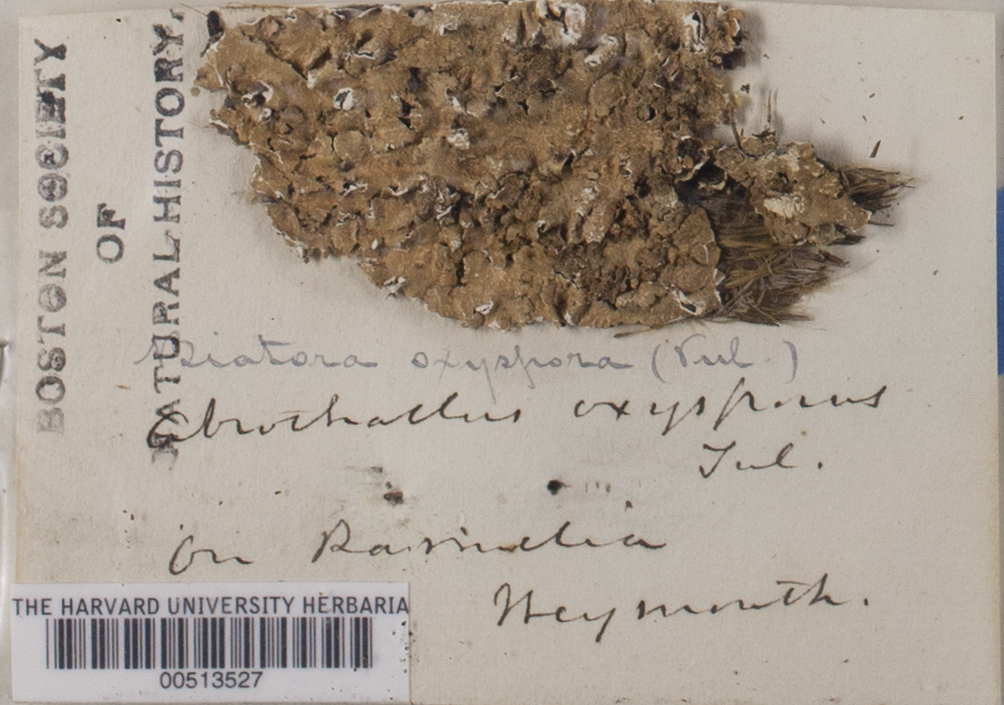 BOSTON SOCIETY
OF
NATURAL HISTORY.
Biatora oxyspora (Tul.)
Abrothallus oxysporus
Tul.
On Parmelia
Weymouth.
THE HARVARD UNIVERSITY HERBARIA
00513527